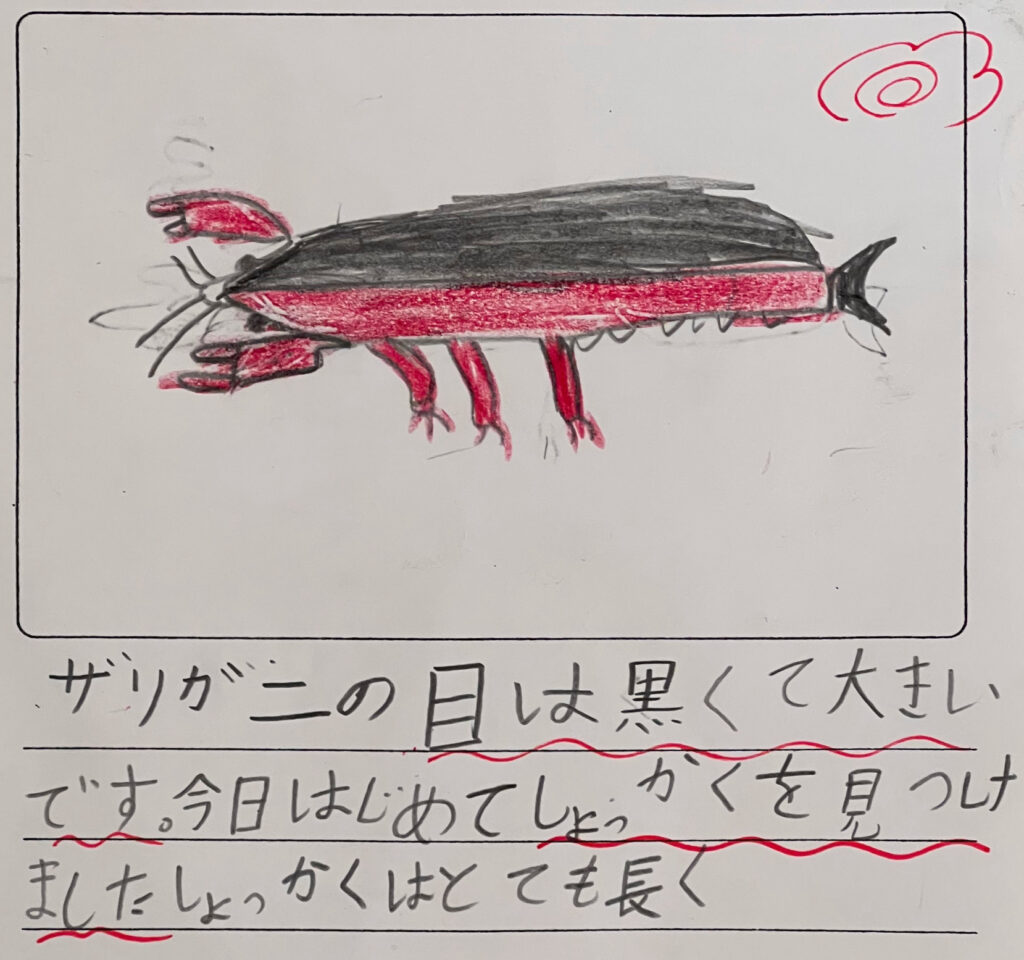 ザリガニの目は黒くて大きい
です。今日はじめてしょっかくを見つけ
ましたしょっかくはとても長く